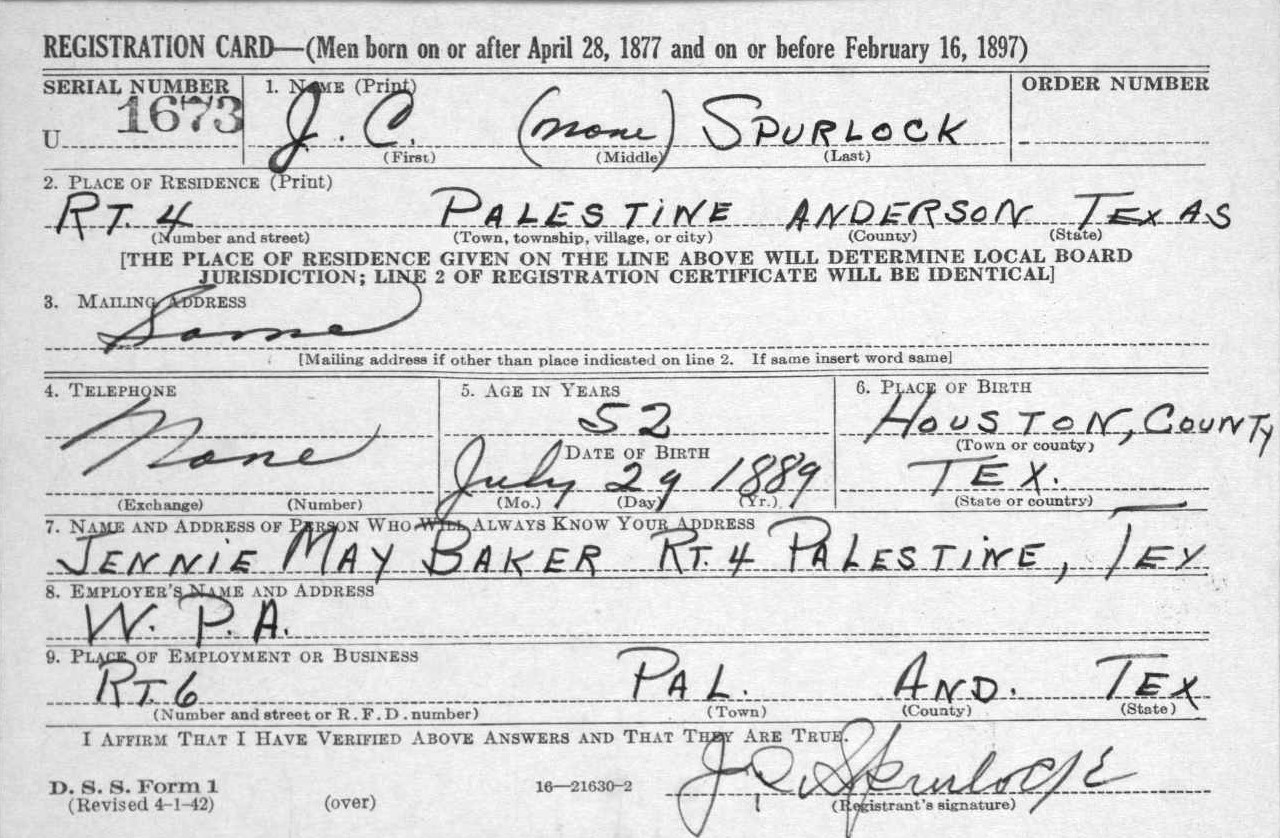 REGISTRATION CARD—(Men born on or after April 28, 1877 and on or before February 16, 1897)
SERIAL NUMBER 1. NAME (Print) ORDER NUMBER
U 1673 J. C. (none) SPURLOCK
(First) (Middle) (Last)
2. PLACE OF RESIDENCE (Print)
RT. 4 PALESTINE ANDERSON TEXAS
(Number and street) (Town, township, village, or city) (County) (State)
[THE PLACE OF RESIDENCE GIVEN ON THE LINE ABOVE WILL DETERMINE LOCAL BOARD
JURISDICTION; LINE 2 OF REGISTRATION CERTIFICATE WILL BE IDENTICAL]
3. MAILING ADDRESS
Same
[Mailing address if other than place indicated on line 2. If same insert word same]
4. TELEPHONE 5. AGE IN YEARS 6. PLACE OF BIRTH
None 52 HOUSTON, COUNTY
DATE OF BIRTH (Town or county)
July 29 1889 TEX.
(Exchange) (Number) (Mo.) (Day) (Yr.) (State or country)
7. NAME AND ADDRESS OF PERSON WHO WILL ALWAYS KNOW YOUR ADDRESS
JENNIE MAY BAKER RT. 4 PALESTINE, TEX
8. EMPLOYER'S NAME AND ADDRESS
W. P. A.
9. PLACE OF EMPLOYMENT OR BUSINESS
RT. 6 PAL. AND. TEX
(Number and street or R. F. D. number) (Town) (County) (State)
I AFFIRM THAT I HAVE VERIFIED ABOVE ANSWERS AND THAT THEY ARE TRUE.
J C Spurlock
D. S. S. Form 1 16—21630-2
(Revised 4-1-42) (over) (Registrant's signature)